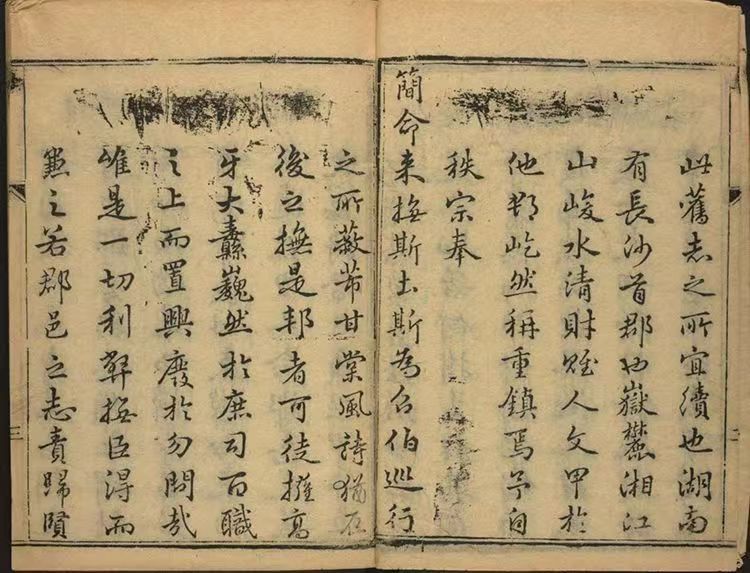 此舊志之所宜續也湖南
有長沙首郡也嶽麓湘江
山峻水清財賦人文甲於
他郡屹然稱重鎮焉予自
秩宗奉
簡命来撫斯土斯為召伯巡行
之所蔽芾甘棠風詩猶在
後之撫是邦者可徒擁高
牙大纛巍然於庶司百職
之上而置興廢於勿問哉
唯是一切利弊撫臣得而
之若郡邑之志責歸賢